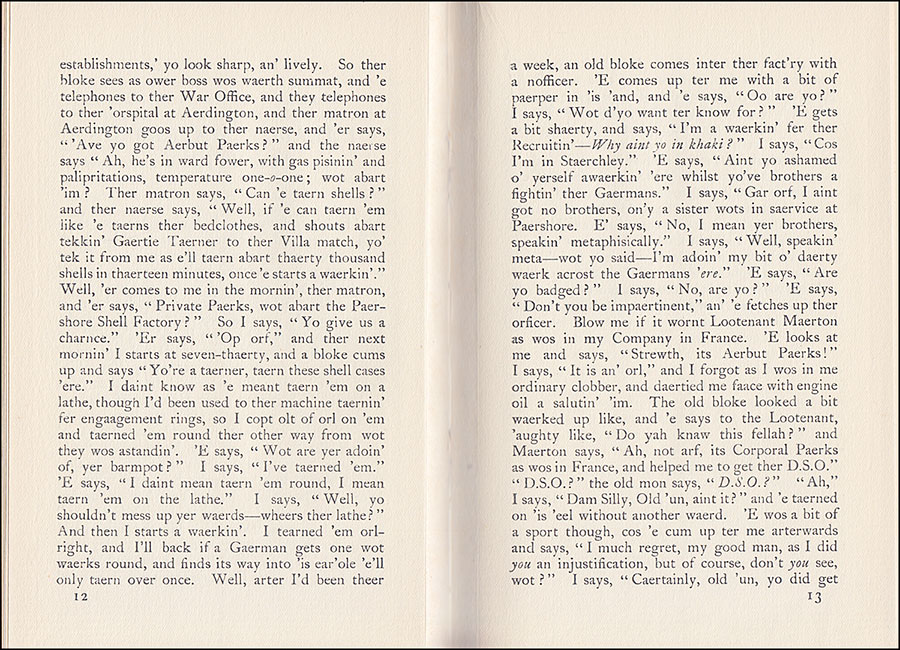 establishments,’ yo look sharp, an’ lively. So ther
bloke sees as ower boss wos waerth summat, and ’e
telephones to ther War Office, and they telephones
to ther ’orspital at Aerdington, and ther matron at
Aerdington goos up to ther naerse, and ’er says,
“’Ave yo got Aerbut Paerks?” and the naerse
says “Ah, he’s in ward fower, with gas pisinin’ and
palipritations, temperature one-o-one; wot abart
’im? Ther matron says, “Can ’e taern shells?”
and ther naerse says, “Well, if ’e can taern ’em
like ’e taerns ther bedclothes, and shouts abart
tekkin’ Gaertie Taerner to ther Villa match, yo’
tek it from me as e’ll taern abart thaerty thousand
shells in thaerteen minutes, once ’e starts a waerkin’.”
Well, ’er comes to me in the mornin’, ther matron,
and ’er says, “Private Paerks, wot abart the Paer-
shore Shell Factory?” So I says, “Yo give us a
charnce.” ’Er says, “’Op orf,” and ther next
mornin’ I starts at seven-thaerty, and a bloke cums
up and says “Yo’re a taerner, taern these shell cases
’ere.” I daint know as ’e meant taern ’em on a
lathe, though I’d been used to ther machine taernin’
fer engaagement rings, so I copt olt of orl on ’em
and taerned ’em round ther other way from wot
they wos astandin’. ’E says, “Wot are yer adoin’
of, yer barmpot?” I says, “I’ve taerned ’em.”
’E says, “I daint mean taern ’em round, I mean
taern ’em on the lathe.” I says, “Well, yo
shouldn’t mess up yer waerds—wheers ther lathe?”
And then I starts a waerkin’. I tearned ’em orl-
right, and I’ll back if a Gaerman gets one wot
waerks round, and finds its way into ’is ear’ole ’e’ll
only taern over once. Well, arter I’d been theer
12
a week, an old bloke comes inter ther fact’ry with
a nofficer. ’E comes up ter me with a bit of
paerper in ’is ’and, and ’e says, “Oo are yo?”
I says, “Wot d’yo want ter know for?” ’E gets
a bit shaerty, and says, “I’m a waerkin’ fer ther
Recruitin’—Why aint yo in khaki?” I says, “Cos
I’m in Staerchley.” ’E says, “Aint yo ashamed
o’ yerself awaerkin’ ’ere whilst yo’ve brothers a
fightin’ ther Gaermans.” I says, “Gar orf, I aint
got no brothers, on’y a sister wots in saervice at
Paershore. E’ says, “No, I mean yer brothers,
speakin’ metaphisically.” I says, “Well, speakin’
meta—wot yo said—I’m adoin’ my bit o’ daerty
waerk acrost the Gaermans ’ere.” ’E says, “Are
yo badged?” I says, “No, are yo?” ’E says,
“Don’t you be impaertinent,” an’ ’e fetches up ther
orficer. Blow me if it wornt Lootenant Maerton
as wos in my Company in France. ’E looks at
me and says, “Strewth, its Aerbut Paerks!”
I says, “It is an’ orl,” and I forgot as I wos in me
ordinary clobber, and daertied me faace with engine
oil a salutin’ ’im. The old bloke looked a bit
waerked up like, and ’e says to the Lootenant,
’aughty like, “Do yah knaw this fellah?” and
Maerton says, “Ah, not arf, its Corporal Paerks
as wos in France, and helped me to get ther D.S.O.”
“D.S.O.?” the old mon says, “D.S.O.?” “Ah,”
I says, “Dam Silly, Old ’un, aint it?” and ’e taerned
on ’is ’eel without another waerd. ’E wos a bit of
a sport though, cos ’e cum up ter me arterwards
and says, “I much regret, my good man, as I did
you an injustification, but of course, don’t you see,
wot?” I says, “Caertainly, old ’un, yo did get
13